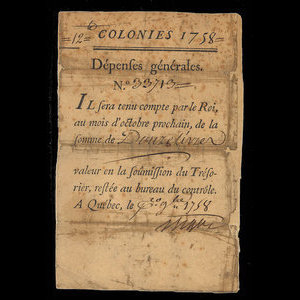 COLONIES 1758
=12=
Dépenses générales.
N.º 33713
IL sera tenu compte par le Roi,
au mois d'octobre prochain, de la
somme de Douze livres
valeur en la soumission du Tréso-
rier, restée au bureau du contrôle.
A Québec, le 9bre 1758